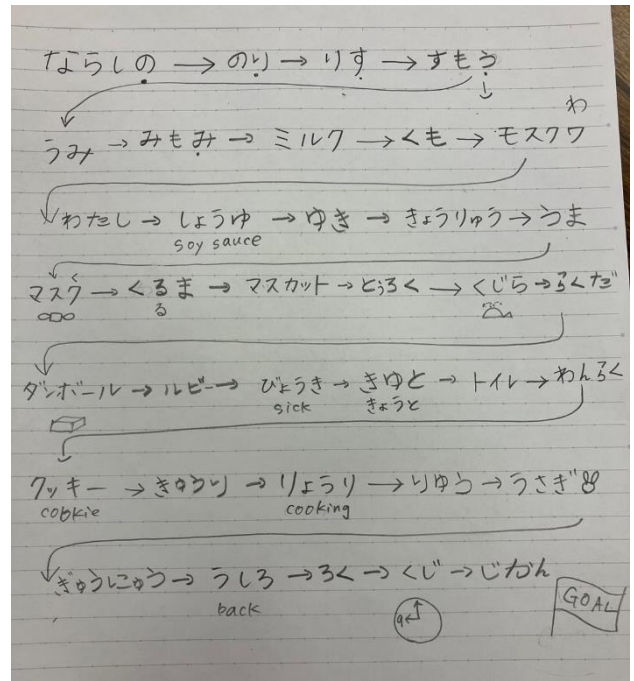 ならしの → のり → りす → すもう
わ
うみ → みもみ → ミルク → くも → モスクワ
わたし → しょうゆ → ゆき → きょうりゅう → うま
soy sauce
マスク → くるま → マスカット → とうろく → くじら → らくだ
く
る
ダンボール → ルビー → びょうき → きゆと → トイレ → わんろく
sick きょうと
クッキー → きゅうり → りょうり → りゆう → うさぎ
cookie cooking
ぎゅうにゅう → うしろ → ろく → くじ → じかん
back 9 GOAL